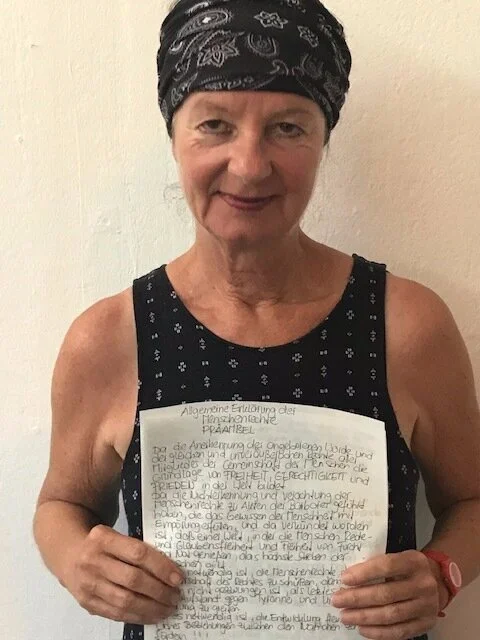 Allgemeine Erklärung der
Menschenrechte
PRÄAMBEL
Da die Anerkennung der angeborenen Würde und
der gleichen und unveräußerlichen Rechte aller
Mitglieder der Gemeinschaft der Menschen die
Grundlage von FREIHEIT, GERECHTIGKEIT und
FRIEDEN in der Welt bildet
Da die Nichterkennung und Verachtung der
Menschenrechte zu Akten der Barbarei geführt
haben, die das Gewissen der Menschheit mit
Empörung erfüllen, und da verkündet worden
ist, daß einer Welt, in der die Menschen Rede-
und Glaubensfreiheit und Freiheit von Furcht
und Not genießen, das höchste Streben der
gilt
notwendig ist, die Menschenrechte
des Rechtes zu schützen,
nicht gezwungen ist, als letztes
Aufstand gegen Tyrannei und
zu greifen
notwendig ist, die Entwicklung
Beziehungen zwischen den Nationen
fördern !!!